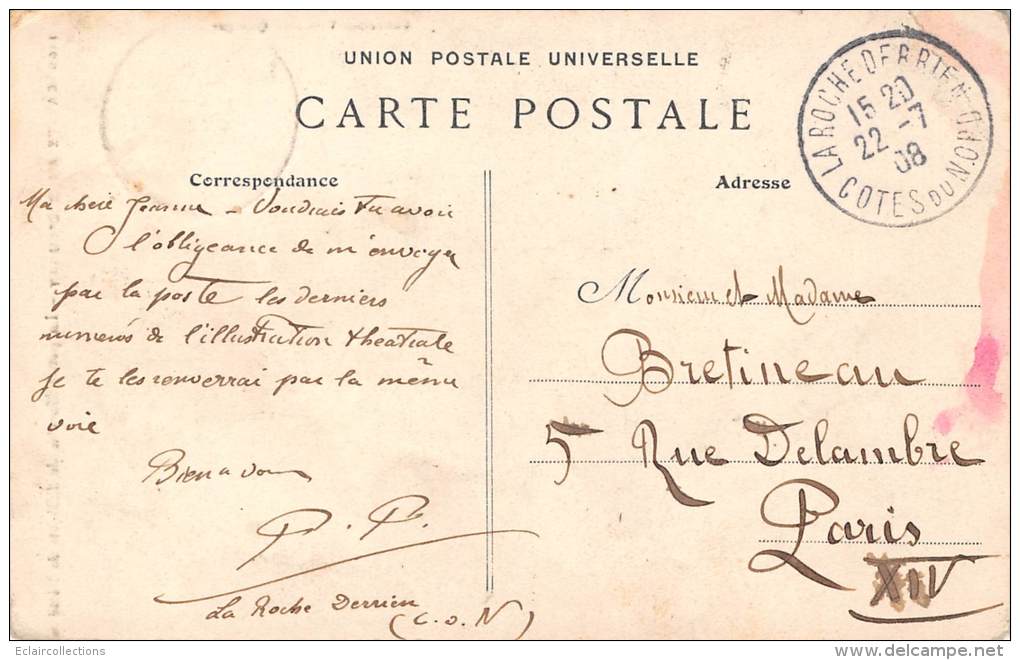 UNION POSTALE UNIVERSELLE
CARTE POSTALE
LA ROCHE DERRIEN
15 20
22 -7
08
COTES DU NORD
Correspondance
Ma chere Jeanne - Voudrais tu avoir
l'obligeance de m'envoyer
par la poste les derniers
numeros de l'illustration theatrale
Je te les renverrai par la même
voie
Bien a vous
P. P.
La Roche Derrien
(C. D. N)
Adresse
Monsieur et Madame
Bretineau
5 Rue Delambre
Paris
XIV
Eclaircollections
www.delcampe.net